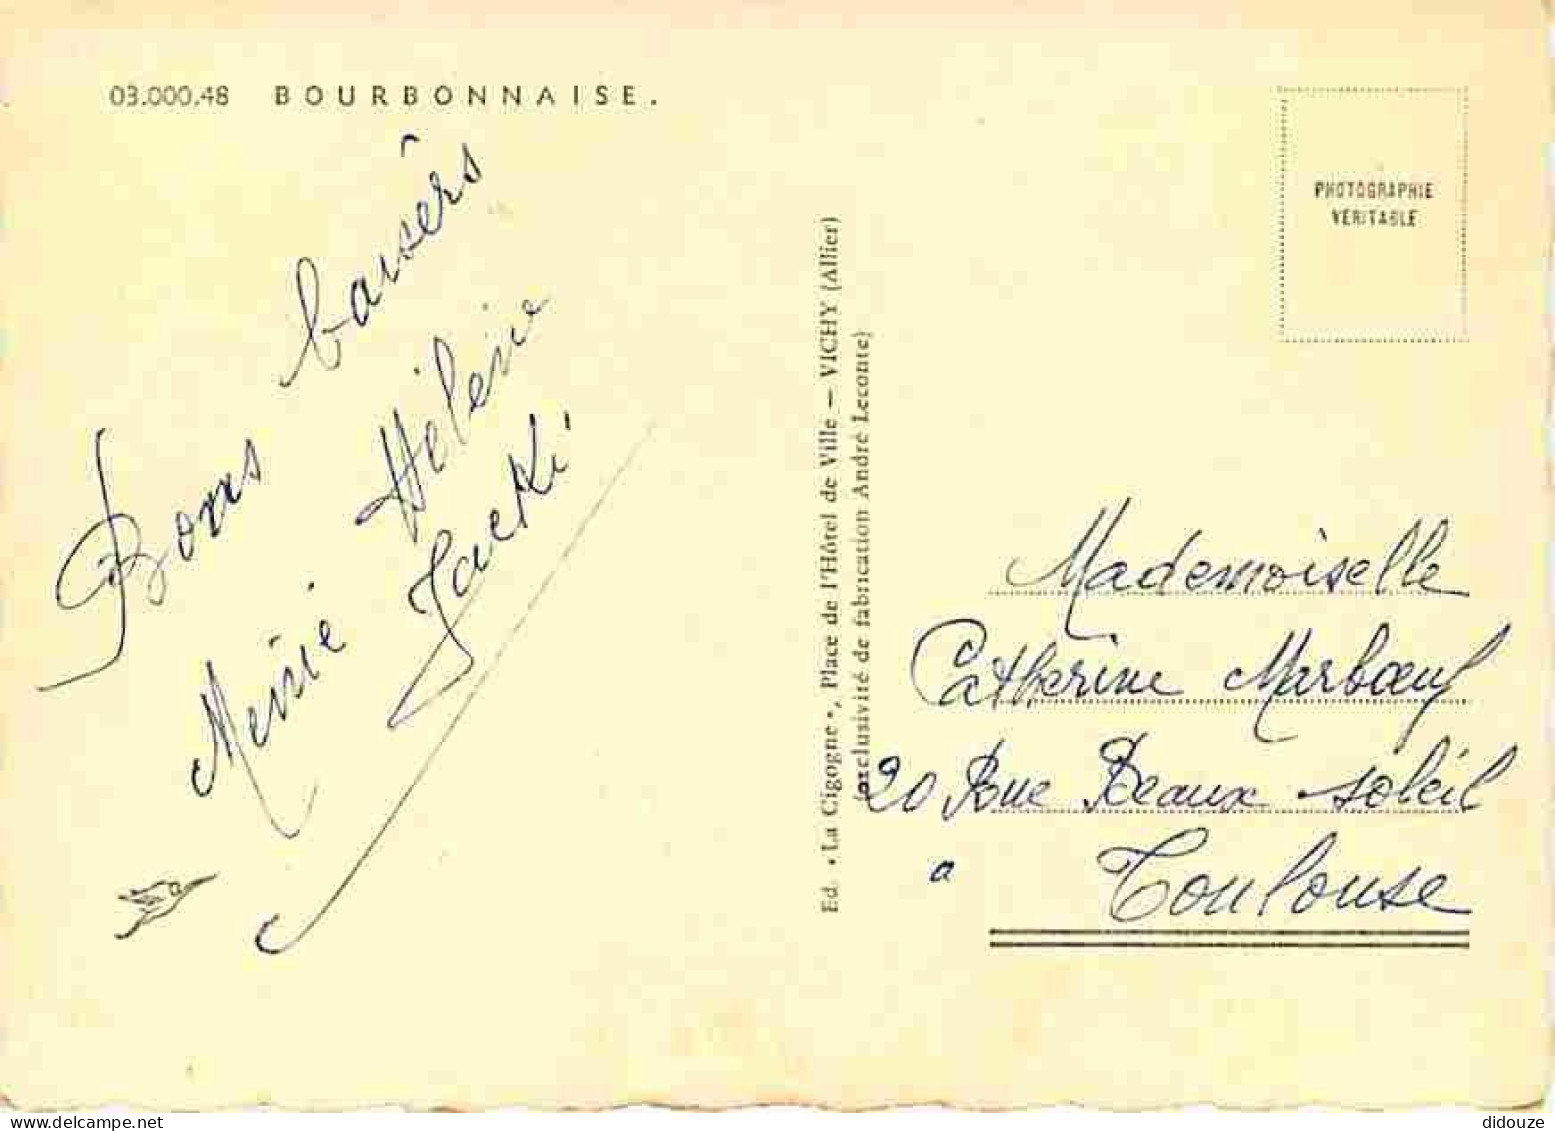 03.000.48 BOURBONNAISE.
Bons baisèrs
Mémé Hélène
Jacki
Ed. « La Cigogne », Place de l'Hôtel de Ville — VICHY (Allier)
(exclusivité de fabrication André Leconte)
PHOTOGRAPHIE
VÉRITABLE
Mademoiselle
Catherine Marbœuf
20 Rue Beaux soleil
a Toulouse
delcampe.net
didouze